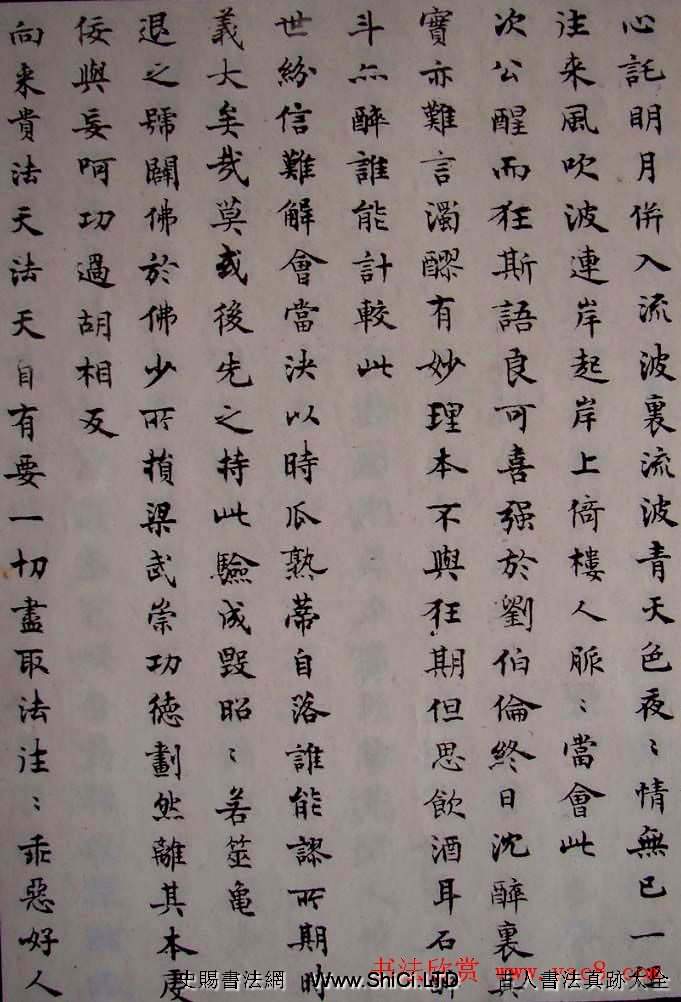 心託明月併入流波裏流波青天色夜〻情無已一
注来風吹波連岸起岸上倚樓人脈〻當會此
次公醒而狂斯語良可喜强於劉伯倫終日沈醉裏
實亦難言濁醪有妙理本不與狂期但思飲酒耳石
斗亦醉誰能計較此
世紛信難解會當決以時瓜熟蒂自落誰能謬所期時
義大矣哉莫或後先之持此驗成毀昭〻若筮龜
退之號闢佛於佛少所損梁武崇功德劃然離其本
佞與妄呵功過胡相反
向来貴法天法天自有要一切盡取法注〻乖惡好人
书法欣赏 www.yac8.com
史賜書法網 www.ShiCi.LTD 古人書法真跡大全